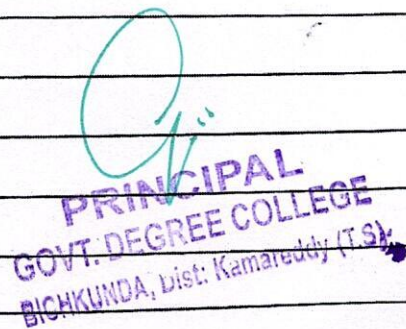 PRINCIPAL
GOVT. DEGREE COLLEGE
BICHKUNDA, Dist: Kamareddy (T.S).